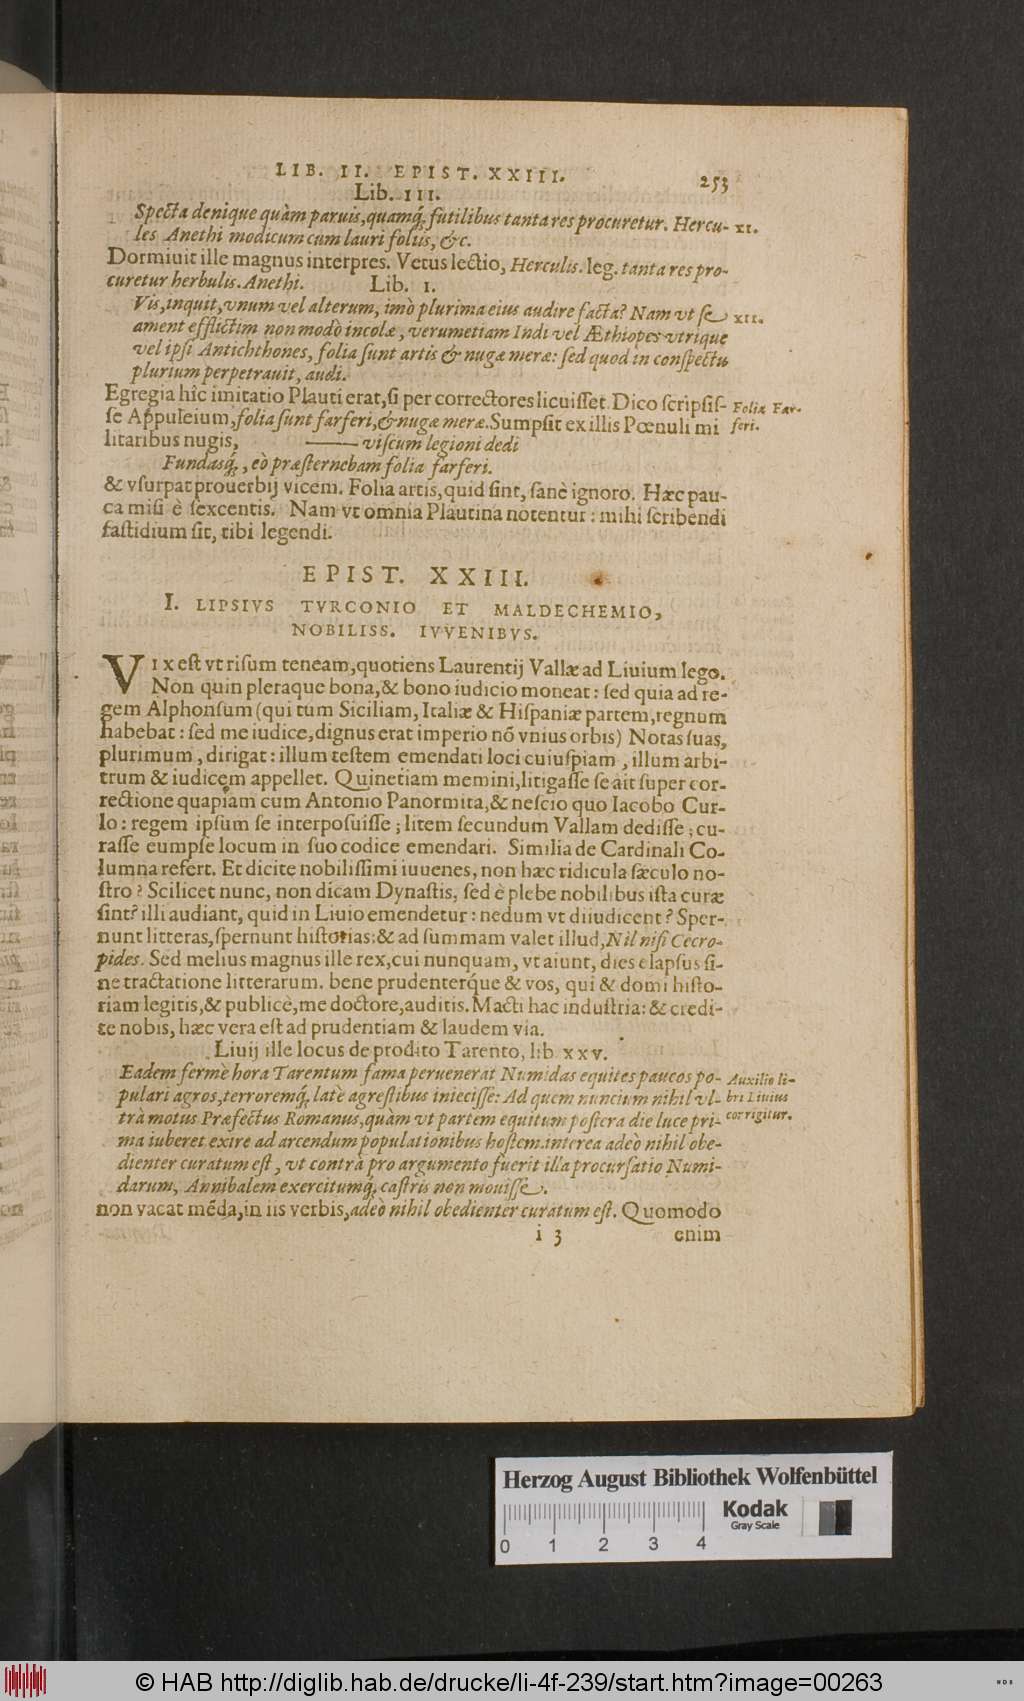 LIB. II. EPIST. XXIII. 253
Lib. III.
Specta denique quàm paruis, quamq́; futilibus tanta res procuretur. Hercu- XI.
les Anethi modicum cum lauri foliis, &c.
Dormiuit ille magnus interpres. Vetus lectio, Herculis. leg. tanta res pro-
curetur herbulis. Anethi. Lib. I.
Vis, inquit, vnum vel alterum, imò plurima eius audire facta? Nam vt se XII.
ament efflictim non modò incolæ, verumetiam Indi vel Æthiopes vtrique
vel ipsi Antichthones, folia sunt artis & nugæ meræ: sed quod in conspectu
plurium perpetrauit, audi.
Egregia hîc imitatio Plauti erat, si per correctores licuisset. Dico scripsis- Folia Far-
se Appuleium, folia sunt farferi, & nugæ meræ. Sumpsit ex illis Pœnuli mi feri.
litaribus nugis, ——— viscum legioni dedi
Fundasq́;, eò præsternebam folia farferi.
& vsurpat prouerbij vicem. Folia artis, quid sint, sanè ignoro. Hæc pau-
ca misi è sexcentis. Nam vt omnia Plautina notentur: mihi scribendi
fastidium sit, tibi legendi.
EPIST. XXIII.
I. LIPSIVS TVRCONIO ET MALDECHEMIO,
NOBILISS. IVVENIBVS.
VIX est vt risum teneam, quotiens Laurentij Vallæ ad Liuium lego.
Non quin pleraque bona, & bono iudicio moneat: sed quia ad re-
gem Alphonsum (qui tum Siciliam, Italiæ & Hispaniæ partem, regnum
habebat: sed me iudice, dignus erat imperio nō vnius orbis) Notas suas,
plurimum, dirigat: illum testem emendati loci cuiuspiam, illum arbi-
trum & iudicem appellet. Quinetiam memini, litigasse se ait super cor-
rectione quapiam cum Antonio Panormita, & nescio quo Iacobo Cur-
lo: regem ipsum se interposuisse; litem secundum Vallam dedisse; cu-
rasse eumpse locum in suo codice emendari. Similia de Cardinali Co-
lumna refert. Et dicite nobilissimi iuuenes, non hæc ridicula sæculo no-
stro? Scilicet nunc, non dicam Dynastis, sed è plebe nobilibus ista curæ
sint? illi audiant, quid in Liuio emendetur: nedum vt diiudicent? Sper-
nunt litteras, spernunt historias: & ad summam valet illud, Nil nisi Cecro-
pides. Sed melius magnus ille rex, cui nunquam, vt aiunt, dies elapsus si-
ne tractatione litterarum. bene prudenterq́ue & vos, qui & domi histo-
riam legitis, & publicè, me doctore, auditis. Macti hac industria: & credi-
te nobis, hæc vera est ad prudentiam & laudem via.
Liuij ille locus de prodito Tarento, lib. xxv.
Eadem fermè hora Tarentum fama peruenerat Numidas equites paucos po- Auxilio li-
pulari agros, terroremq́; latè agrestibus iniecisse: Ad quem nuncium nihil vl- bri Liuius
trà motus Præfectus Romanus, quàm vt partem equitum postera die luce pri- corrigitur.
ma iuberet exire ad arcendum populationibus hostem. interea adeò nihil obe-
dienter curatum est, vt contrà pro argumento fuerit illa procursatio Numi-
darum, Annibalem exercitumq́; castris non mouisse.
non vacat mēda, in iis verbis, adeò nihil obedienter curatum est. Quomodo
i 3 enim
Herzog August Bibliothek Wolfenbüttel
0 1 2 3 4
Kodak
Gray Scale
© HAB http://diglib.hab.de/drucke/li-4f-239/start.htm?image=00263